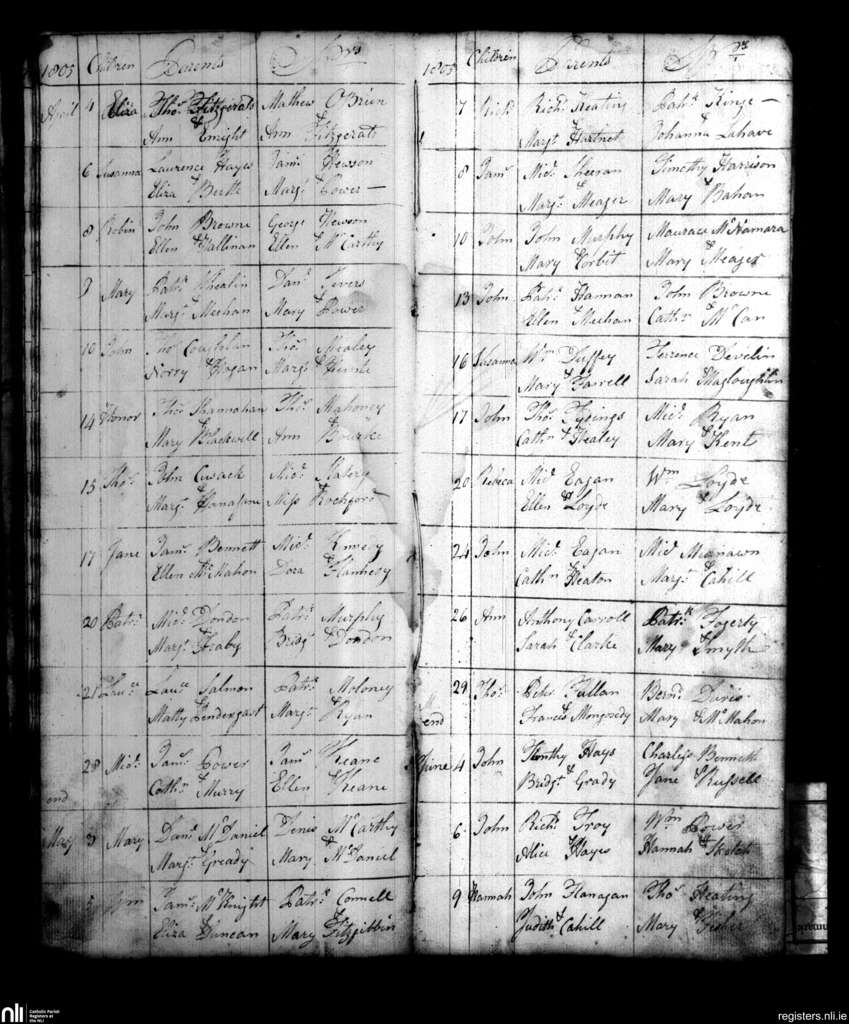 1805 Children Parents Sprs
April 4 Eliza Thos Fitzgerald Mathew O'Brien
& &
Ann Enright Ann Fitzgerald
6 Susanna Laurence Hayes Jams Hewson
Eliza & Burke Margt & Power
8 Robin John Browne George Hewson
Ellen & Hallinan Ellen & McCarthy
9 Mary Patk Whealin Danl
Margt & Meehan Mary & Power
10 John Thos Coughlin Thos Mealey
Norry & Hogan Margt &
14 Honor Thos Shannahan Thos Mahoney
Mary & Blackwell Ann & Bourke
15 Thos John Cusack Michl Slatery
Margt & Miss & Rochford
17 Jane Jams Bennett Michl
Ellen McMahon Dora &
20 Patk Michl Dondon Patk Murphy
Margt & Bridgt & Dondon
21 Laurce Laurce Salmon Patk Moloney
Matty & Pendergast Margt & Ryan
28 Michl Jams Power Jams Keane
end Cathn & Murry Ellen & Keane
May 3 Mary Danl McDaniel Denis McCarthy
Margt & Gready Mary & McDaniel
5 Wm Jams McKnight Patk Connell
Eliza & Duncan Mary & Fitzgibbin
1805 Children Parents Sprs
7 Richd Richd Keating Patk
Margt & Hartnet Johanna & Lahave
8 Jams Michl Sheeran Timothy Harrison
Margt & Meager Mary & Bahan
10 John John Murphy Maurace McNamara
Mary & Corbit Mary & Meager
13 John Patk Hannan John Browne
Ellen & Meehan Cathn & McCan
16 Susanna Wm Duffey Terrence Develin
Mary & Farrell Sarah & Magloughlin
17 John Thos Michl Ryan
Cathn & Healey Mary & Kent
20 Rebeca Michl Eagan Wm Loyde
Ellen & Loyde Mary & Loyde
24 John Michl Eagan Michl
Cathn & Heaton Margt & Cahill
26 Ann Anthony Carroll Patk Fogerty
Sarah & Clarke Mary & Smyth
29 Thos Peter Fallan Bernd
end Francis Mary & McMahon
June 4 John Timthy Hays Charles Bennett
Bridgt & Grady Jane & Russell
6 John Richd Troy Wm Power
Alice & Hayes Hannah &
9 Hannah John Flanagan Thos Keating
Judith & Cahill Mary & Fisher
nli
Catholic Parish
Registers at
the NLI
registers.nli.ie